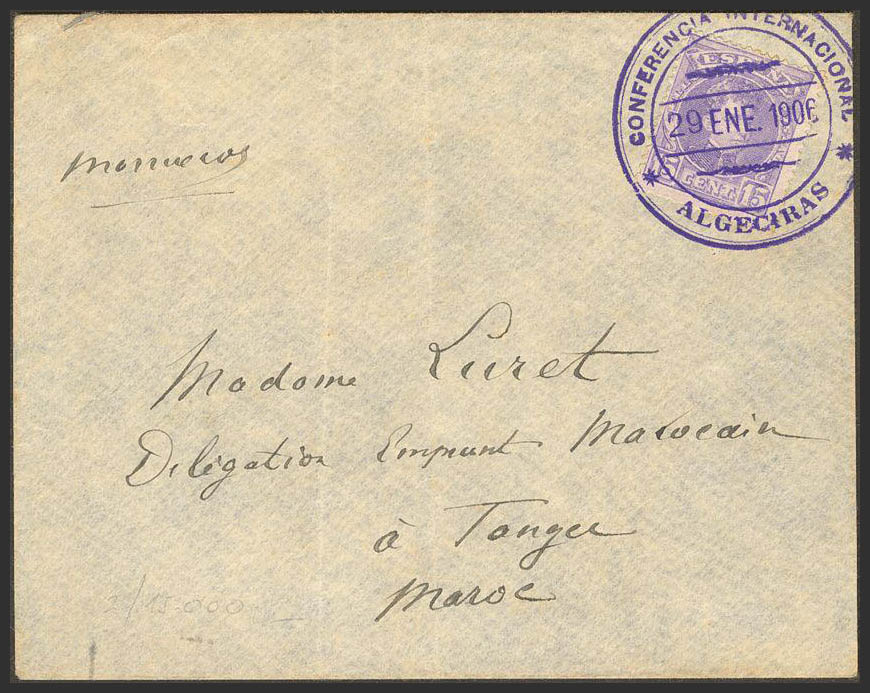 CONFERENCIA INTERNACIONAL
29 ENE. 1906
* ALGECIRAS *
CENT. 15
Madame Luret
Délégation Emprunt Marocain
à Tanger
Maroc
15.000